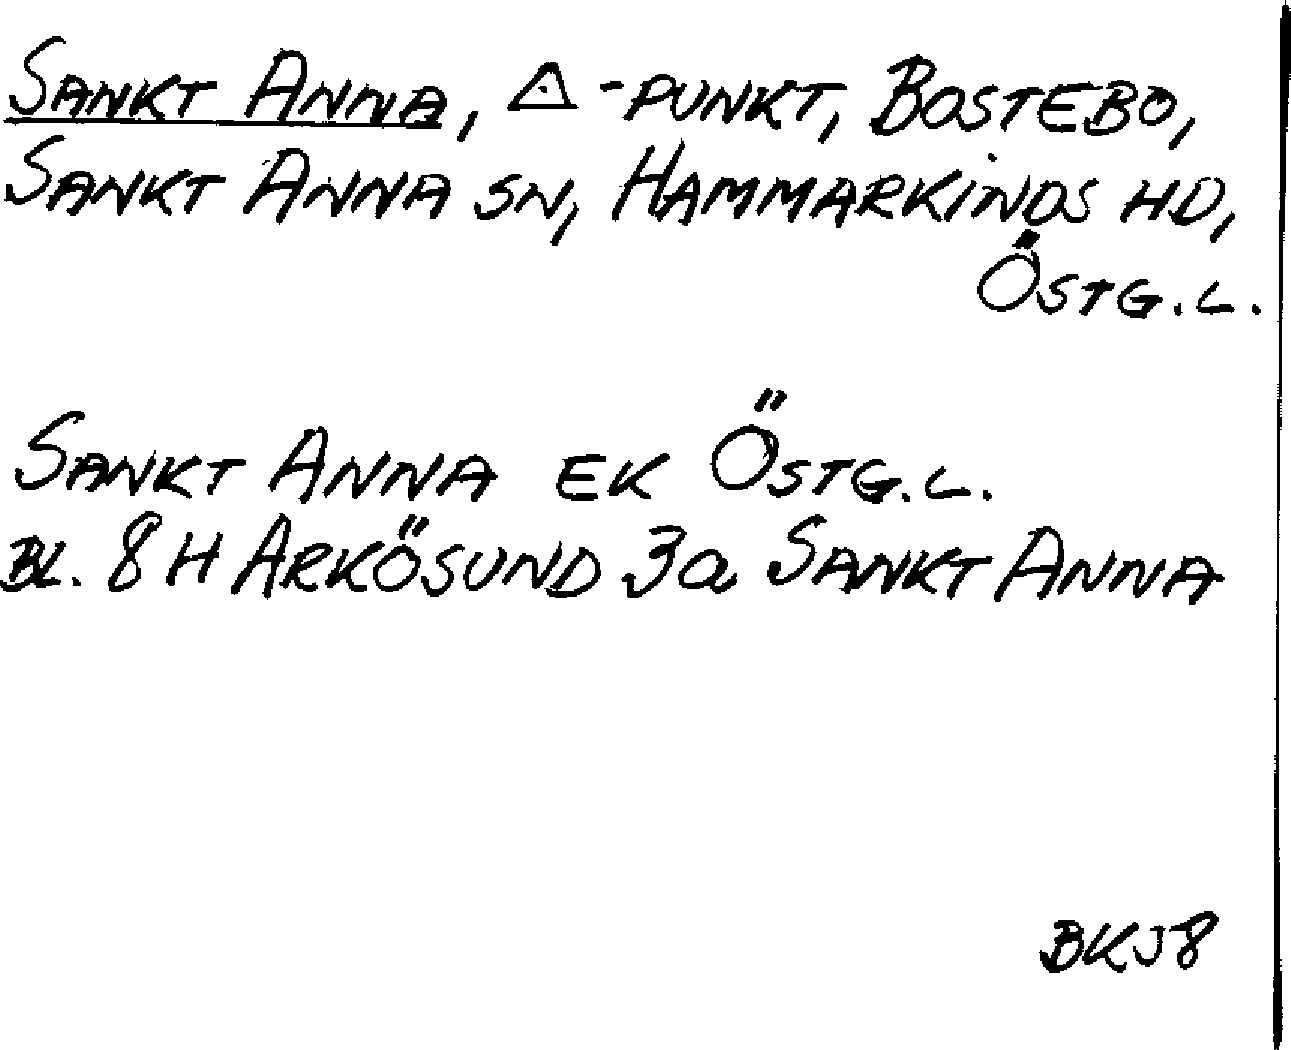 SANKT ANNA, △-PUNKT, BOSTEBO,
SANKT ANNA SN, HAMMARKINDS HD,
ÖSTG.L.
SANKT ANNA EK ÖSTG.L.
BL. 8H ARKÖSUND 3a SANKT ANNA
BKJ8